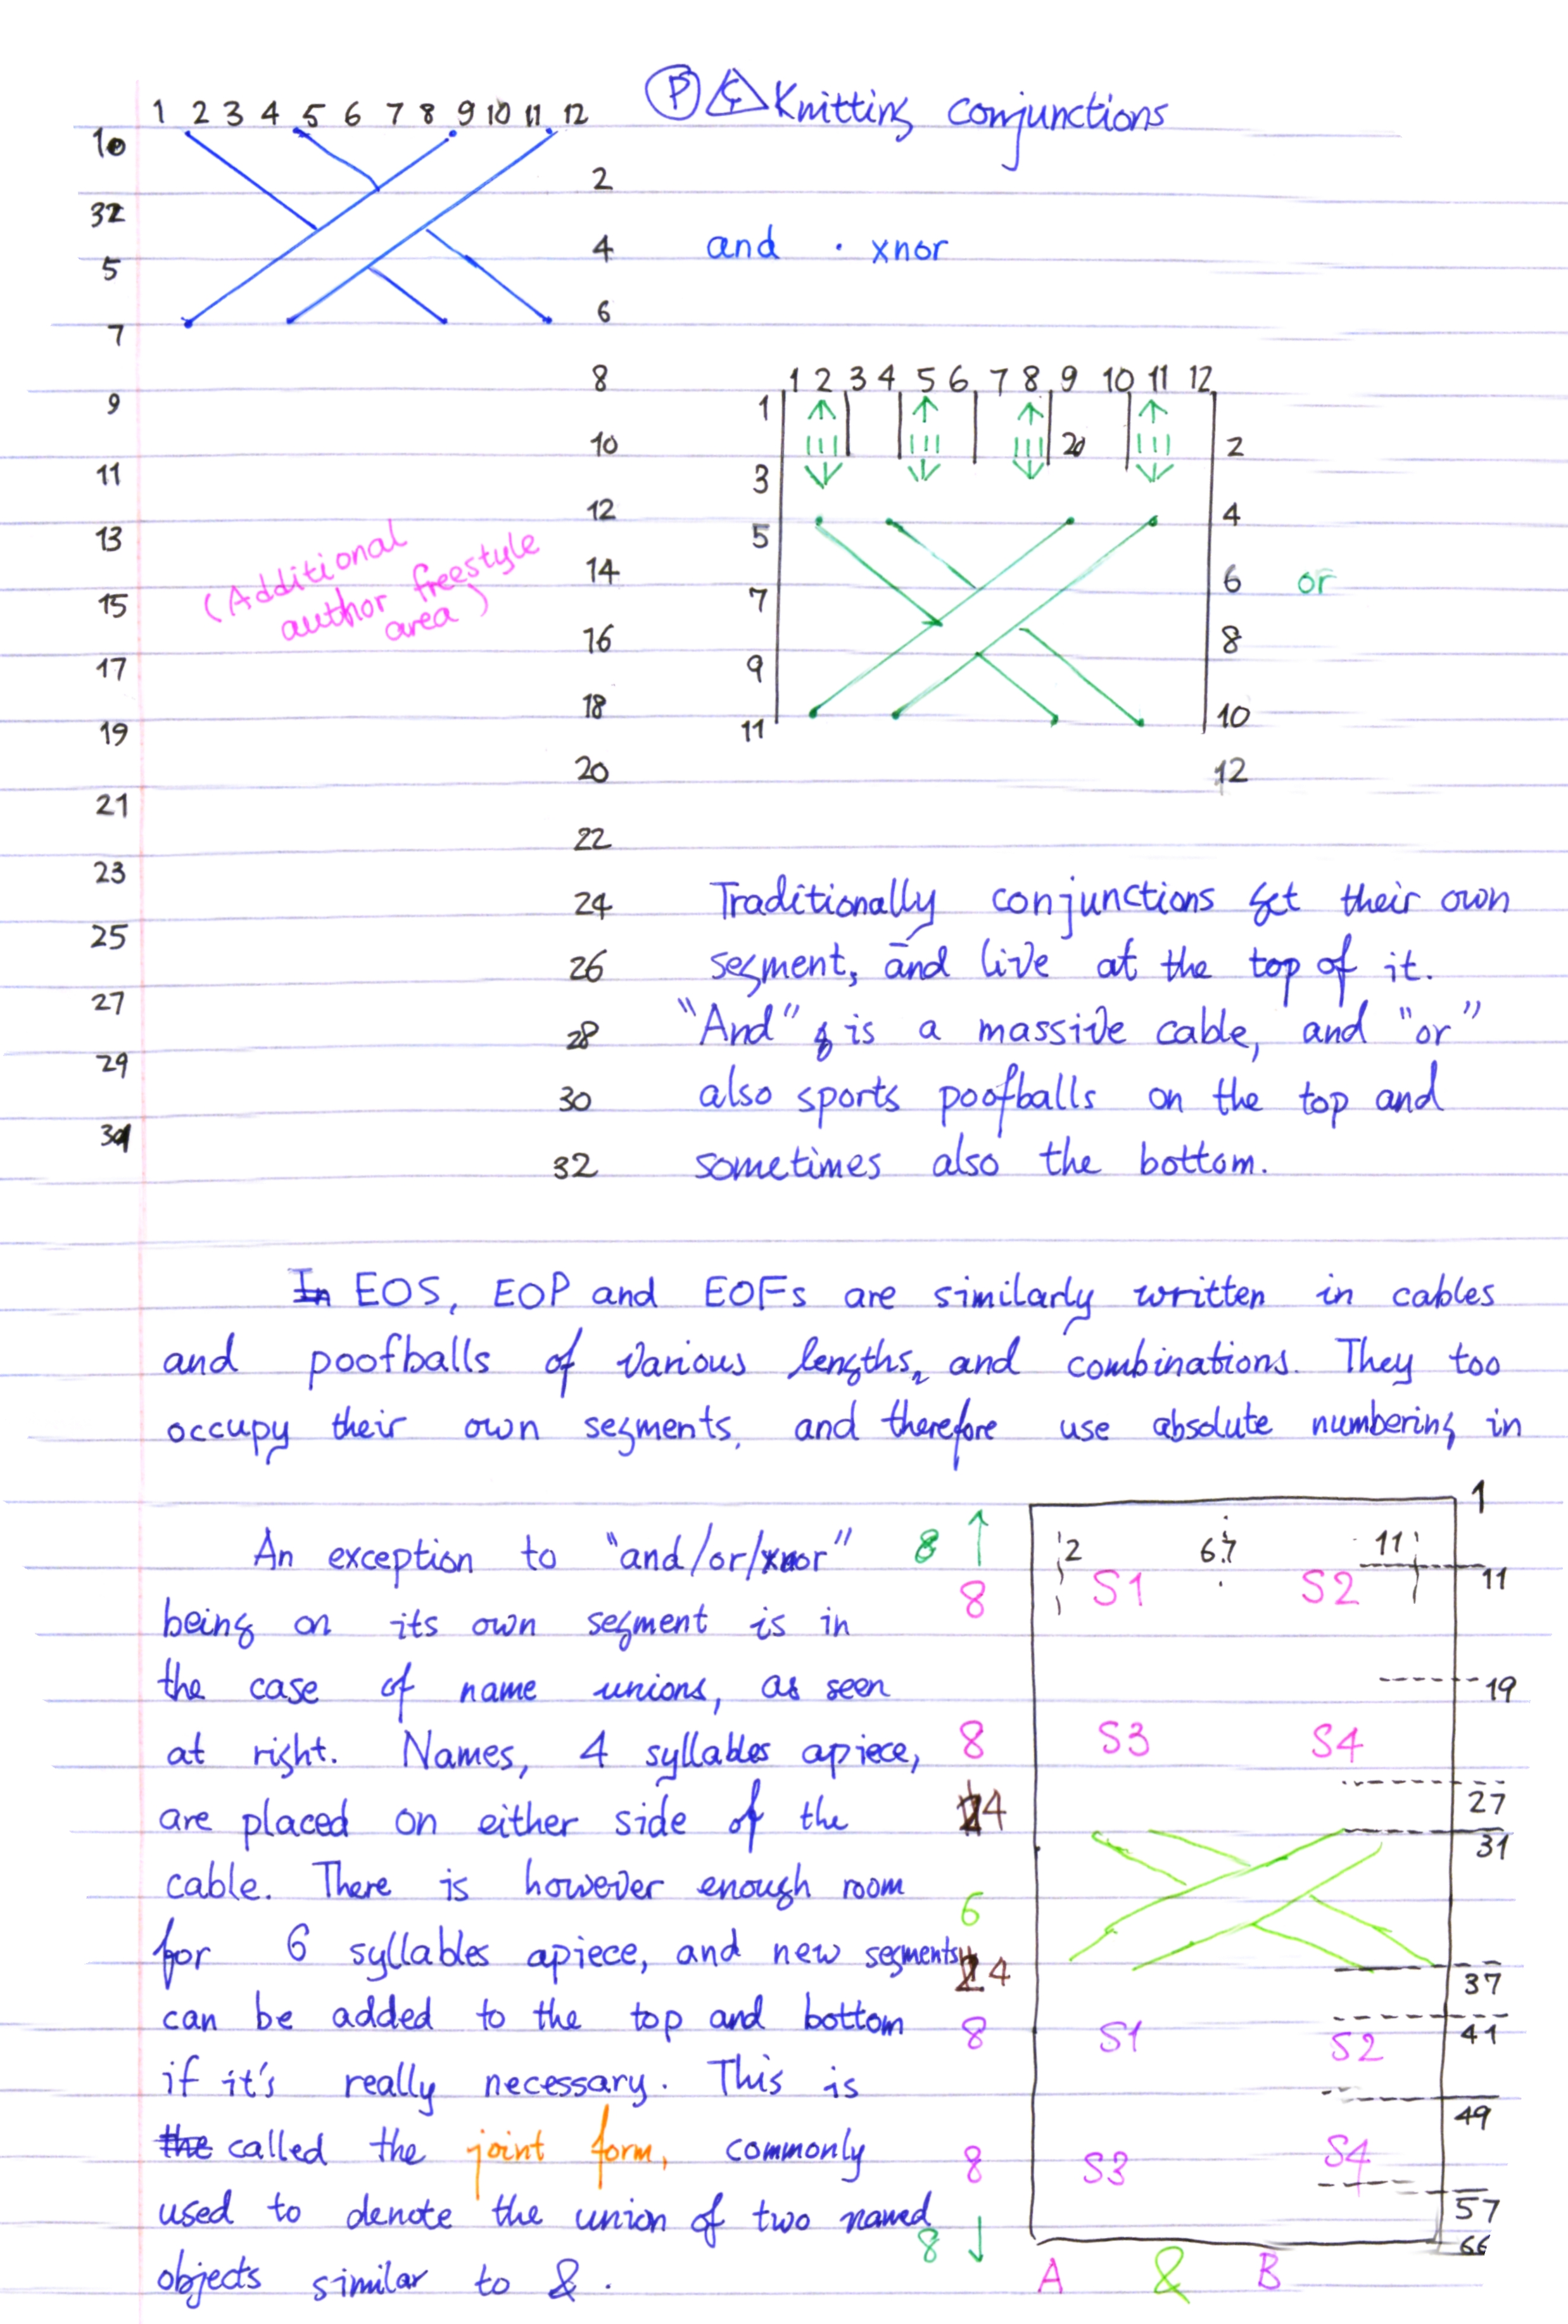 P C Knitting conjunctions
1 2 3 4 5 6 7 8 9 10 11 12
1
2
3
4
5
6
7
8
9
10
11
12
13
14
15
16
17
18
19
20
21
22
23
24
25
26
27
28
29
30
31
32
and · xnor
(Additional
author freestyle
area)
1 2 3 4 5 6 7 8 9 10 11 12
1
20
2
3
4
5
6
or
7
8
9
10
11
12
Traditionally conjunctions get their own
segment, and live at the top of it.
"And" is a massive cable, and "or"
also sports poofballs on the top and
sometimes also the bottom.
In EOS, EOP and EOFs are similarly written in cables
and poofballs of various lengths, and combinations. They too
occupy their own segments, and therefore use absolute numbering in
An exception to "and/or/xnor"
being on its own segment is in
the case of name unions, as seen
at right. Names, 4 syllables apiece,
are placed on either side of the
cable. There is however enough room
for 6 syllables apiece, and new segments
can be added to the top and bottom
if it's really necessary. This is
the called the joint form, commonly
used to denote the union of two named
objects similar to &.
8
8
8
4
6
4
8
8
8
1
2 6 7 11
11
S1 S2
19
S3 S4
27
31
37
41
S1 S2
49
S3 S4
57
66
A & B